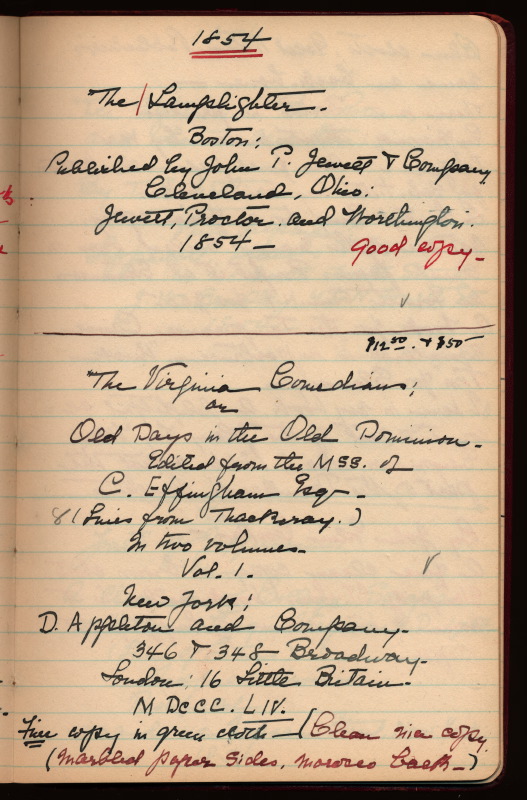 1854
The Lamplighter.
Boston:
Published by John P. Jewett & Company
Cleveland, Ohio:
Jewett, Proctor. and Worthington.
1854 —
Good copy —
$12.50. & $50
The Virginia Comedians;
or
Old Days in the Old Dominion.
Edited from the MSS. of
C. Effingham Esq —
8 (lines from Thackeray.)
In two volumes.
Vol. 1.
New York:
D. Appleton and Company.
346 & 348 Broadway.
London: 16 Little Britain.
M DCCC. LIV.
Fine copy in green cloth — (Clean nice copy.
(Marbled paper sides, morocco back —)